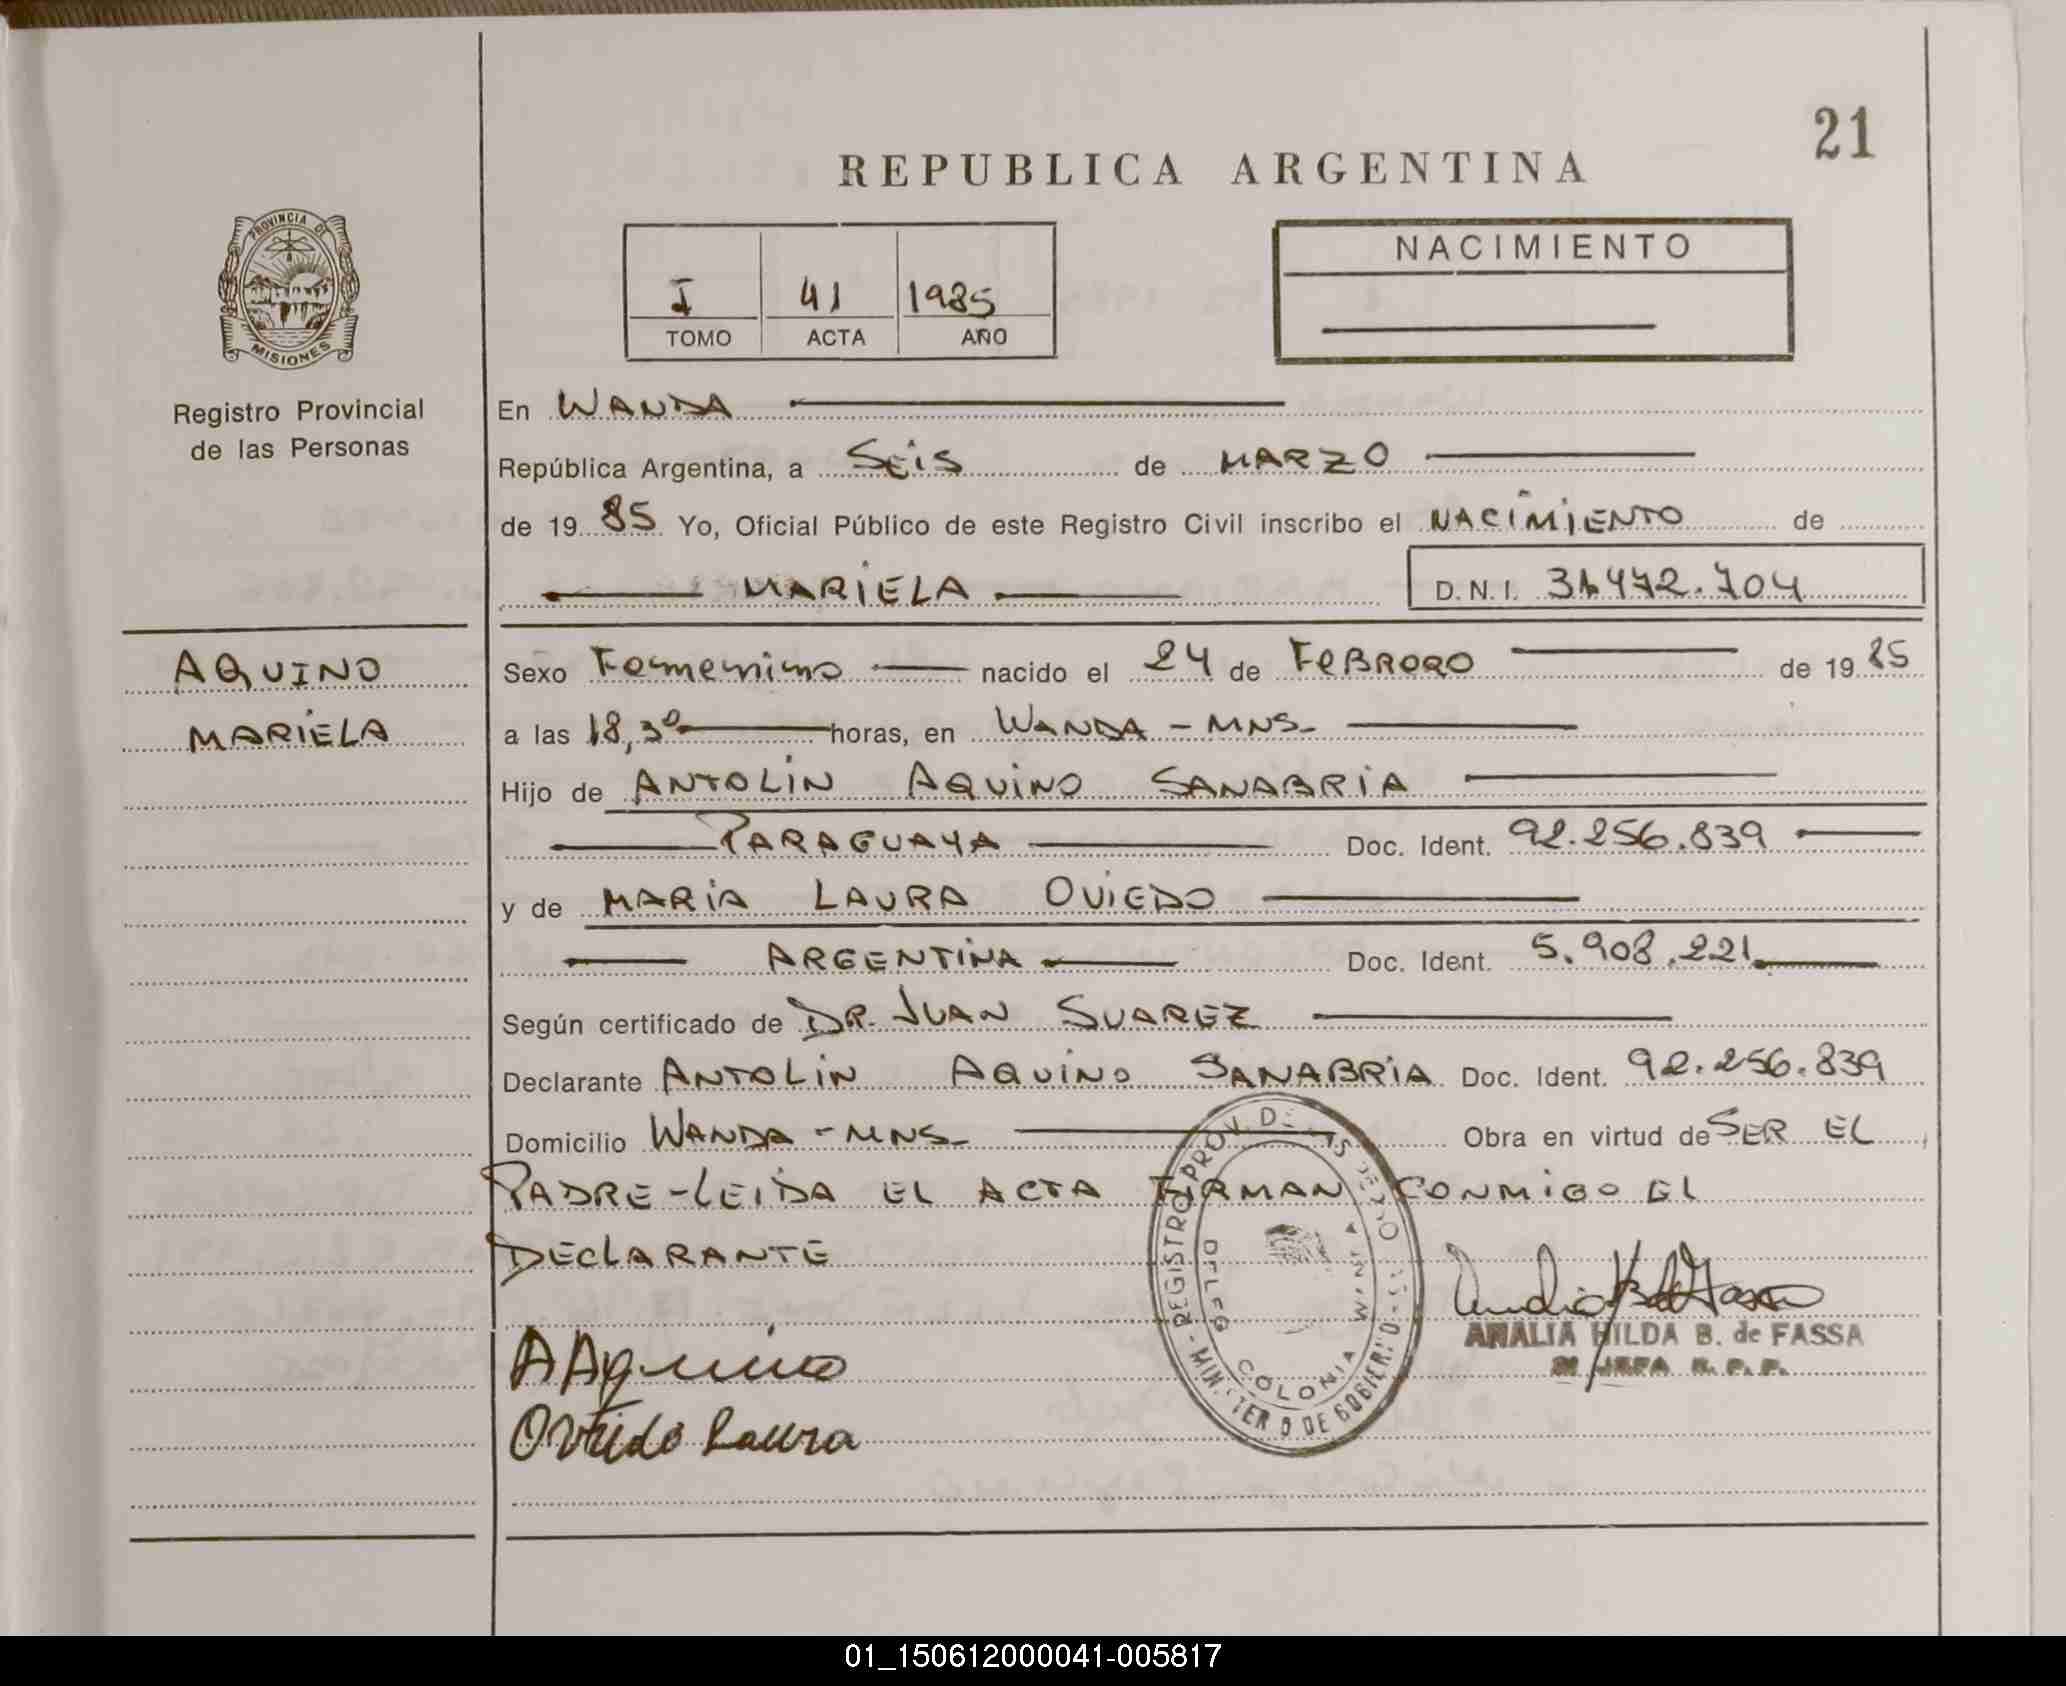 21
REPUBLICA ARGENTINA
PROVINCIA DE
MISIONES
Registro Provincial
de las Personas
I 41 1985
TOMO ACTA AÑO
NACIMIENTO
En WANDA
República Argentina, a SEIS de MARZO
de 19 85 Yo, Oficial Público de este Registro Civil inscribo el NACIMIENTO de
MARIELA D.N.I. 31.472.704
AQUINO
MARIELA
Sexo Femenino nacido el 24 de FEBRERO de 19 85
a las 18,30 horas, en WANDA - MNS-
Hijo de ANTOLIN AQUINO SANABRIA
PARAGUAYA Doc. Ident. 92.256.839
y de MARIA LAURA OVIEDO
ARGENTINA Doc. Ident. 5.908.221
Según certificado de DR. JUAN SUAREZ
Declarante ANTOLIN AQUINO SANABRIA Doc. Ident. 92.256.839
Domicilio WANDA - MNS- Obra en virtud de SER EL
PADRE - LEIDA EL ACTA FIRMAN CONMIGO EL
DECLARANTE
REGISTRO PROV. DE LAS
DELEG
COLONIA WANDA
AAquino
Oviedo Laura
ANALIA HILDA B. de FASSA
JEFA R. P. P.
01_150612000041-005817